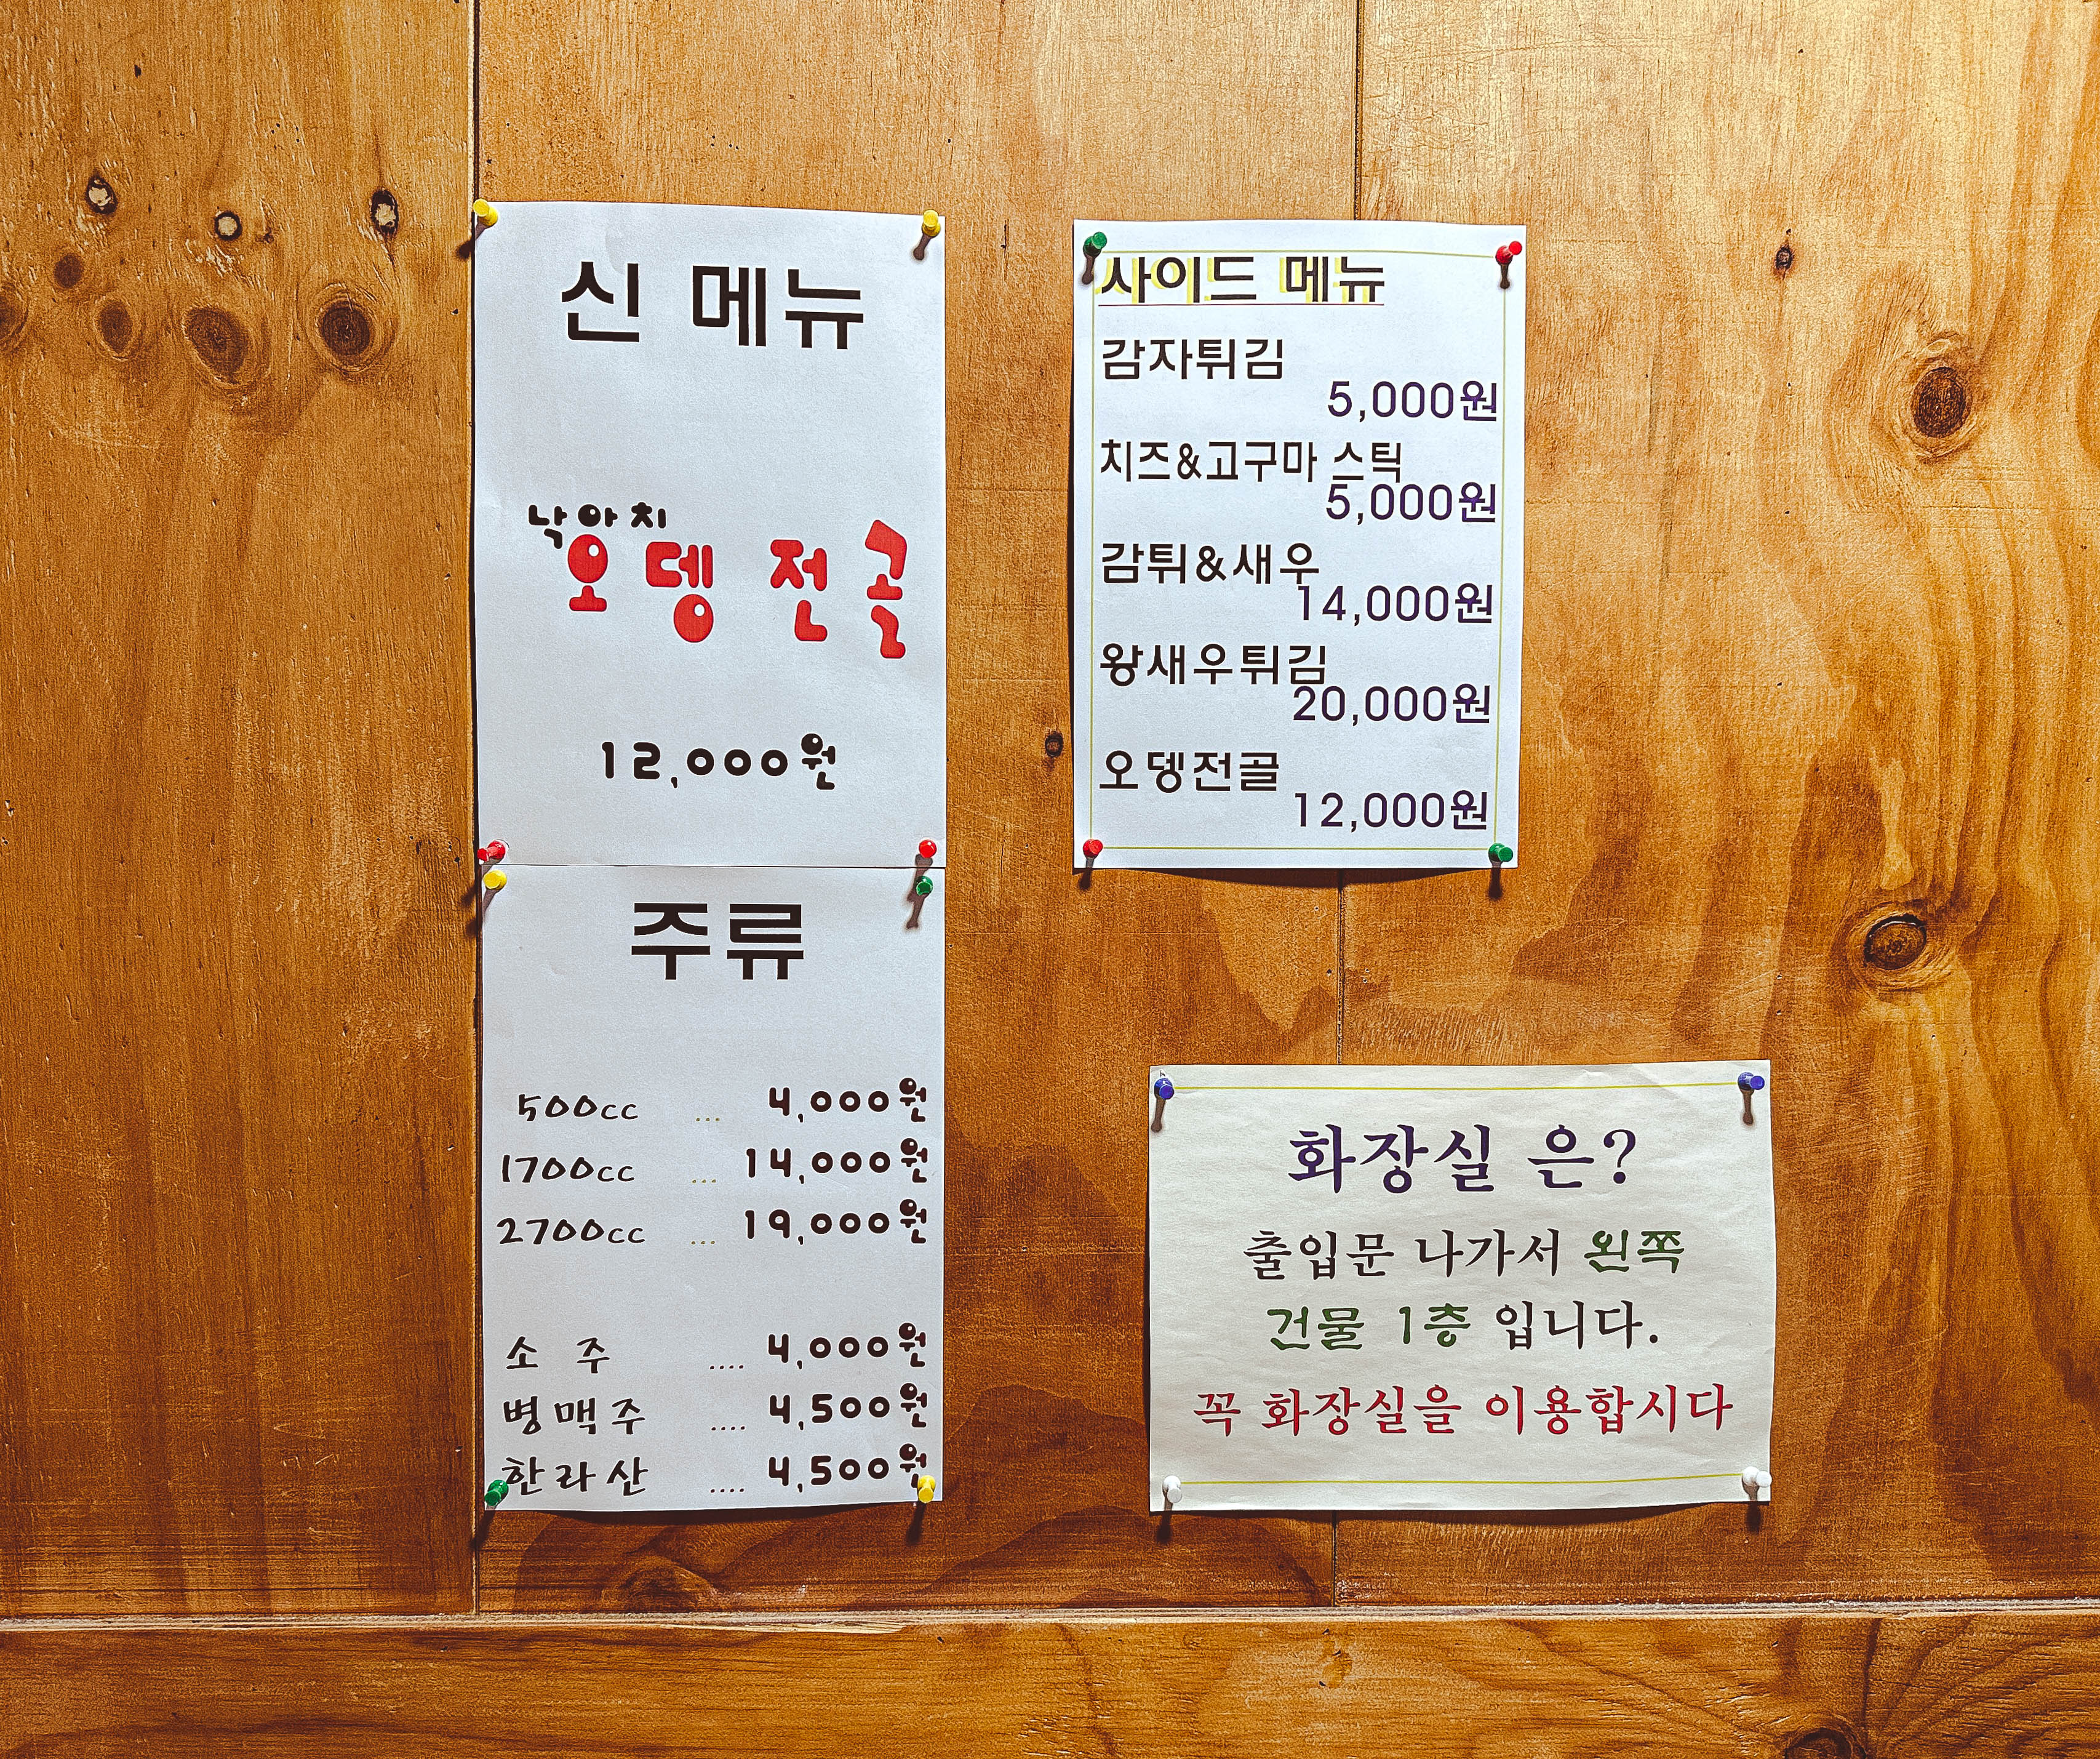 신 메뉴
낙아치
오뎅 전골
12,000원
주류
500cc ... 4,000원
1700cc ... 14,000원
2700cc ... 19,000원
소 주 .... 4,000원
병맥주 .... 4,500원
한라산 .... 4,500원
사이드 메뉴
감자튀김
5,000원
치즈&고구마 스틱
5,000원
감튀&새우
14,000원
왕새우튀김
20,000원
오뎅전골
12,000원
화장실 은?
출입문 나가서 왼쪽
건물 1층 입니다.
꼭 화장실을 이용합시다